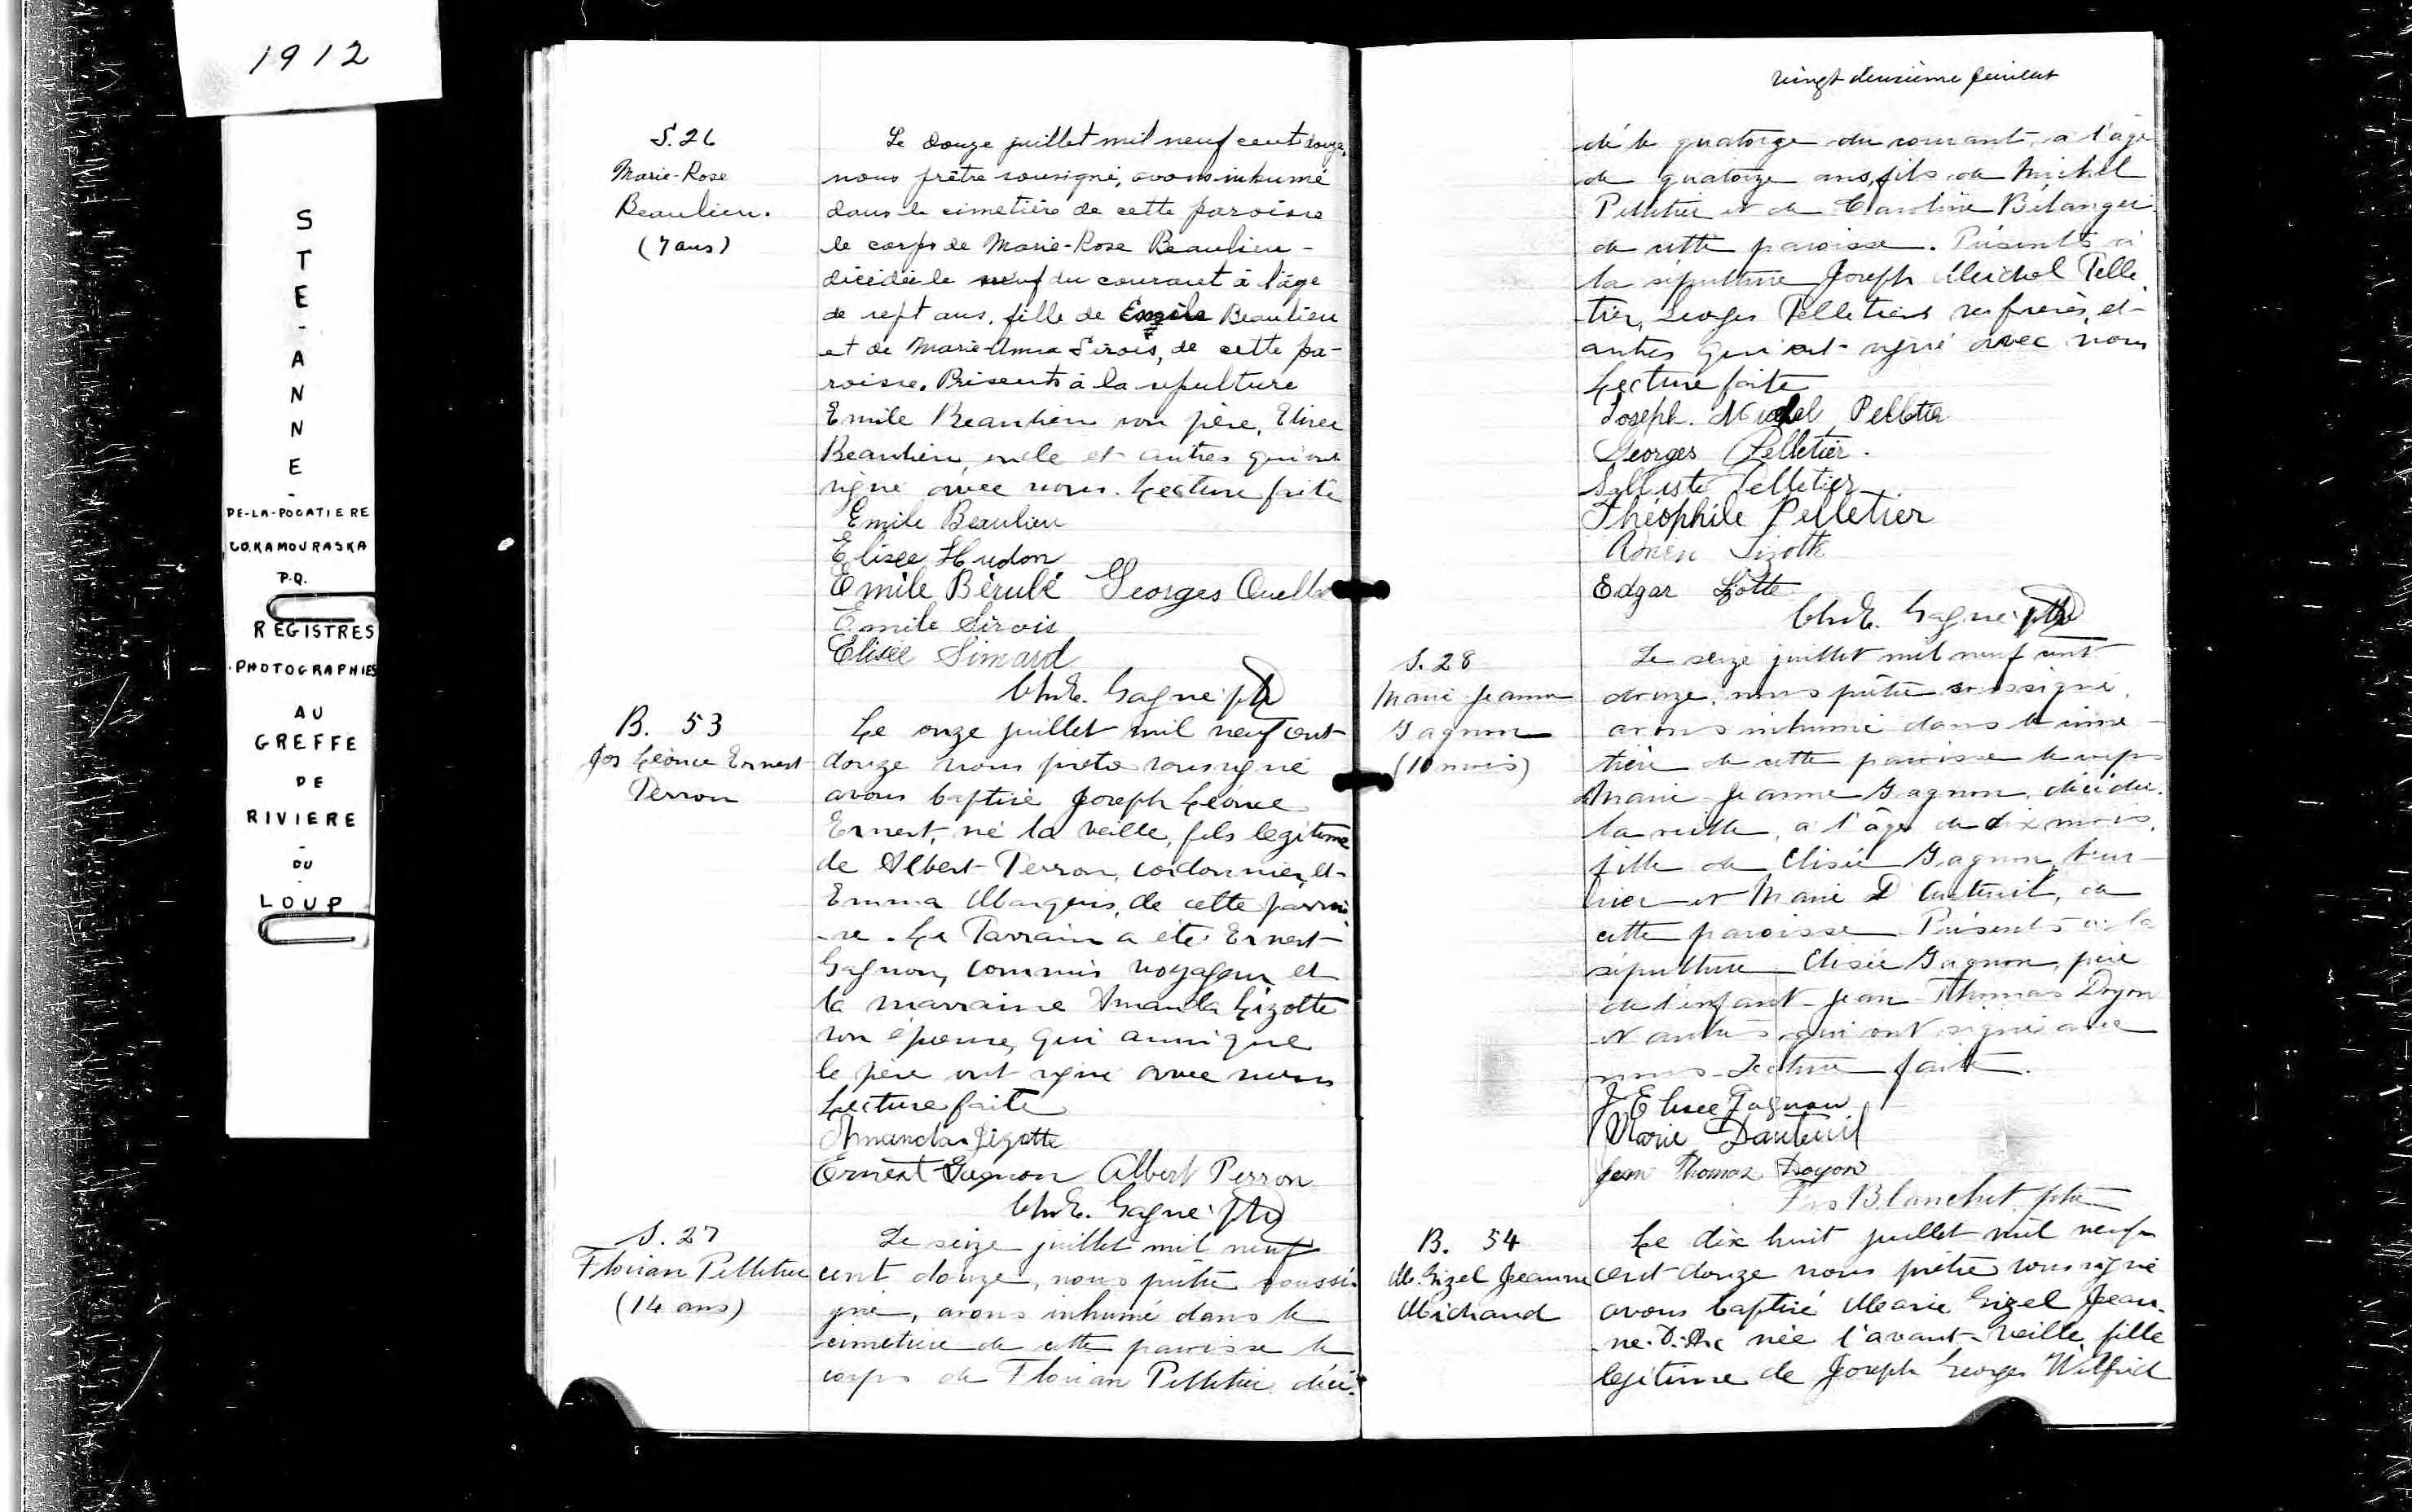 1912
STE-ANNE-
DE-LA-POCATIERE
CO. KAMOURASKA
P.Q.
REGISTRES
PHOTOGRAPHIES
AU
GREFFE
DE
RIVIERE
-
DU
-
LOUP
S. 26
Marie-Rose
Beaulieu.
(7 ans)
Le douze juillet mil neuf cent douze,
nous prêtre soussigné, avons inhumé
dans le cimetière de cette paroisse
le corps de Marie-Rose Beaulieu -
décédée le neuf du courant à l'âge
de sept ans, fille de Emile Beaulieu
et de Marie-Anna Sirois, de cette pa-
roisse. Présents à la sépulture
Emile Beaulieu son père, Elisée
Beaulieu, oncle et autres qui ont
signé avec nous. Lecture faite
Emile Beaulieu
Elisée Hudon
Emile Bérubé Georges Ouellet
Emile Sirois
Elisée Simard
Chs E. Gagné ptr
B. 53
Jos Léonce Ernest
Perron
Le onze juillet mil neuf cent
douze nous prêtre soussigné
avons baptisé Joseph Léonce
Ernest, né la veille, fils légitime
de Albert Perron, cordonnier, et
Emma Marquis, de cette parois-
se. Le Parrain a été Ernest
Gagnon, commis voyageur et
la marraine Amanda Lizotte
son épouse, qui ainsi que
le père ont signé avec nous
Lecture faite
Amanda Lizotte
Ernest Gagnon Albert Perron
Chs E. Gagné ptr
S. 27
Florian Pelletier
(14 ans)
Le seize juillet mil neuf
cent douze, nous prêtre soussi-
gné, avons inhumé dans le
cimetière de cette paroisse le
corps de Florian Pelletier, décé-
vingt deuxième feuillet
dé le quatorze du courant, à l'âge
de quatorze ans, fils de Michel
Pelletier et de Caroline Bélanger
de cette paroisse. Présents à
la sépulture Joseph Michel Pelle-
tier, Georges Pelletier ses frères, et
autres qui ont signé avec nous
Lecture faite
Joseph. Michel Pelletier
Georges Pelletier.
Salluste Pelletier
Théophile Pelletier
Lizotte
Edgar Lizotte
Chs E. Gagné ptr
S. 28
Marie Jeanne
Gagnon
(10 mois)
Le seize juillet mil neuf cent
douze, nous prêtre soussigné,
avons inhumé dans le cime-
tière de cette paroisse le corps
de Marie-Jeanne Gagnon, décédée
la veille, à l'âge de dix mois,
fille de Elisée Gagnon, beur-
rier et Marie D'Auteuil, de
cette paroisse Présents à la
sépulture Elisée Gagnon, père
de l'enfant Jean-Thomas Doyon
et autres qui ont signé avec
nous. Lecture faite.
J Elisee Gagnon
Marie Dauteuil
Jean Thomas Doyon
Frs Blanchet ptr
B. 54
M. Gizel Jeanne
Michaud
Le dix huit juillet mil neuf
cent douze nous prêtre soussigné
avons baptisé Marie Gizel Jean-
ne-D'Arc née l'avant-veille, fille
légitime de Joseph Georges Wilfrid